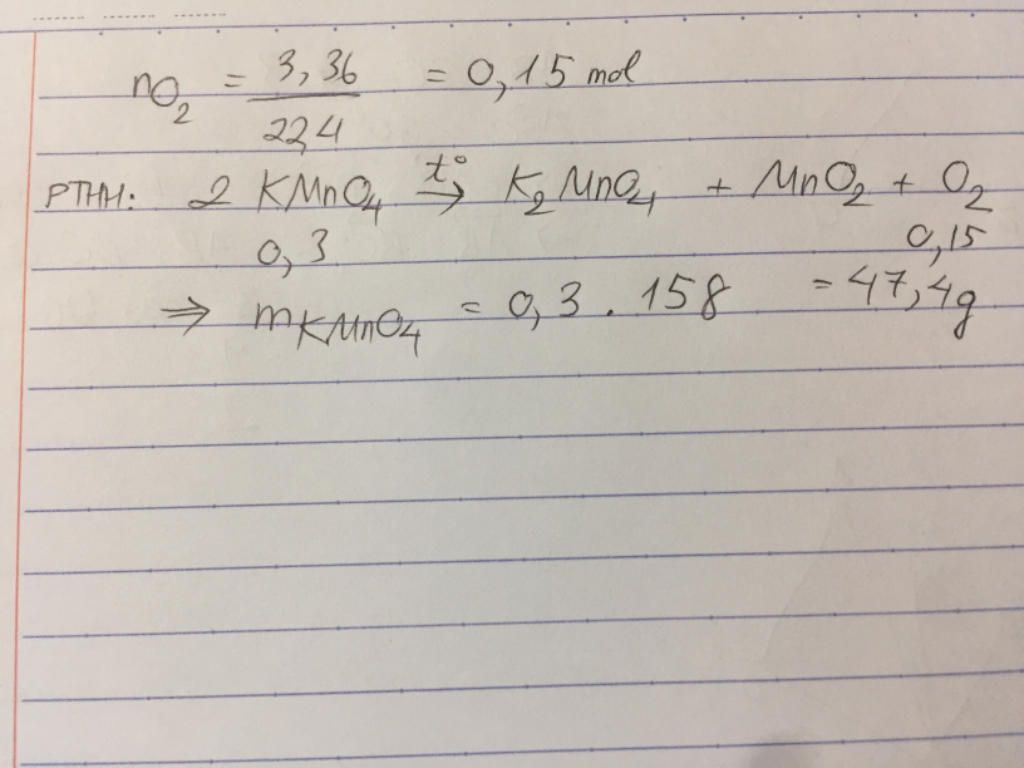 nO₂ = 3,36 / 22,4 = 0,15 mol
PTHH: 2 KMnO₄ t°→ K₂MnO₄ + MnO₂ + O₂
0,3 0,15
⇒ mKMnO₄ = 0,3 . 158 = 47,4g